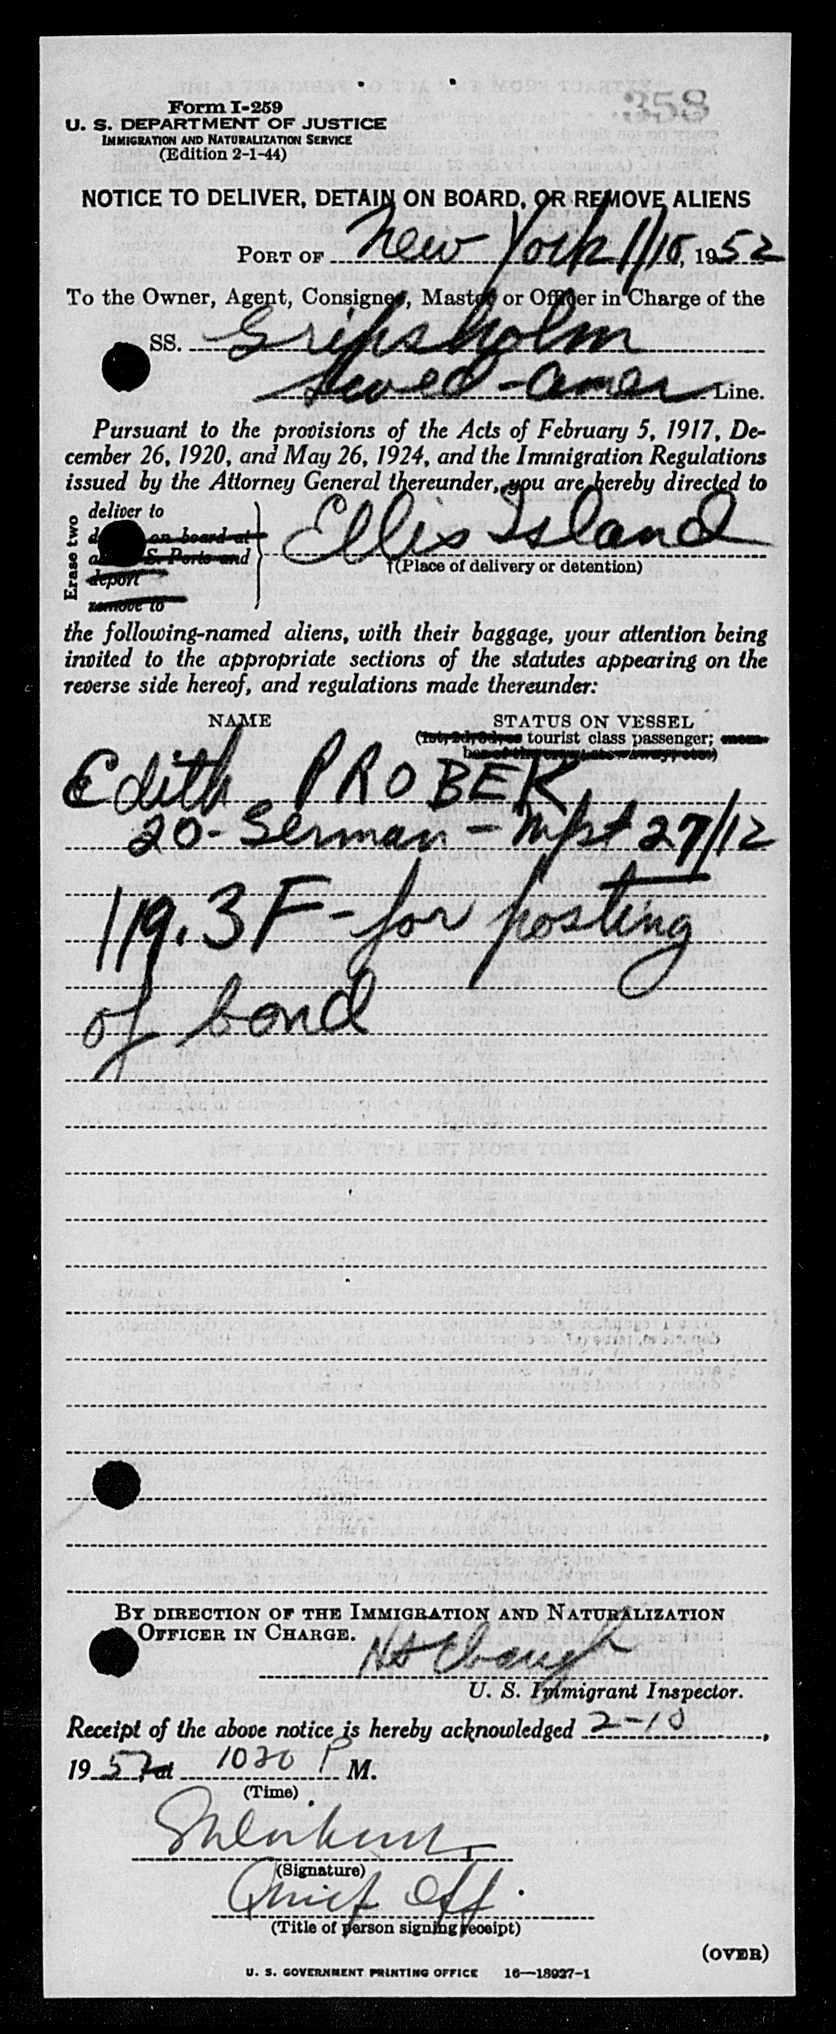 358
Form I-259
U. S. DEPARTMENT OF JUSTICE
IMMIGRATION AND NATURALIZATION SERVICE
(Edition 2-1-44)
NOTICE TO DELIVER, DETAIN ON BOARD, OR REMOVE ALIENS
PORT OF New York 1/10, 1952
To the Owner, Agent, Consignee, Master or Officer in Charge of the
SS. Gripsholm
Swed-Amer Line.
Pursuant to the provisions of the Acts of February 5, 1917, De-
cember 26, 1920, and May 26, 1924, and the Immigration Regulations
issued by the Attorney General thereunder, you are hereby directed to
Erase two
deliver to
on board at
S. Ports and
deport
remove to
Ellis Island
(Place of delivery or detention)
the following-named aliens, with their baggage, your attention being
invited to the appropriate sections of the statutes appearing on the
reverse side hereof, and regulations made thereunder:
NAME STATUS ON VESSEL
(1st, 2d, 3d, or tourist class passenger; mem-
ber of the crew, stowaway, etc.)
Edith PROBER
20- German - Mfst 27/12
119.3 F - for posting
of bond
BY DIRECTION OF THE IMMIGRATION AND NATURALIZATION
OFFICER IN CHARGE.
U. S. Immigrant Inspector.
Receipt of the above notice is hereby acknowledged 2-10,
1952 at 1030 P M.
(Time)
(Signature)
Chief Off.
(Title of person signing receipt)
(OVER)
U. S. GOVERNMENT PRINTING OFFICE 16—18927-1